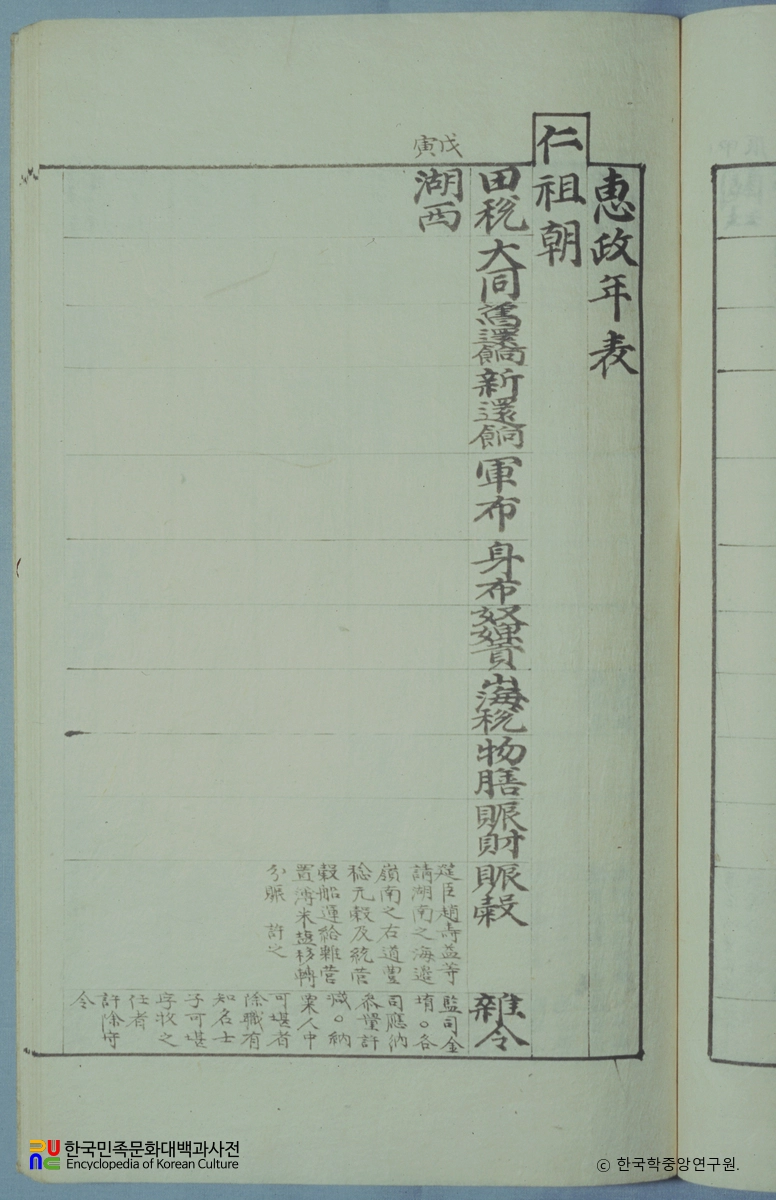 惠政年表
仁祖朝
田稅 大同 舊還餉 新還餉 軍布 身布 奴婢貢 山海稅 物膳 賑財 賑穀 雜令
戊寅
湖西
筵臣趙壽益等
請湖南之海邊
嶺南之右道豐
稔元穀及統營
穀船運給難營
置簿米鹽移轉
分賑 許之
監司金
堉○各
司應納
參量許
减○納
粟人中
可堪者
除職有
知名士
子可堪
字牧之
任者
許除守
令
한국민족문화대백과사전
Encyclopedia of Korean Culture
ⓒ 한국학중앙연구원.